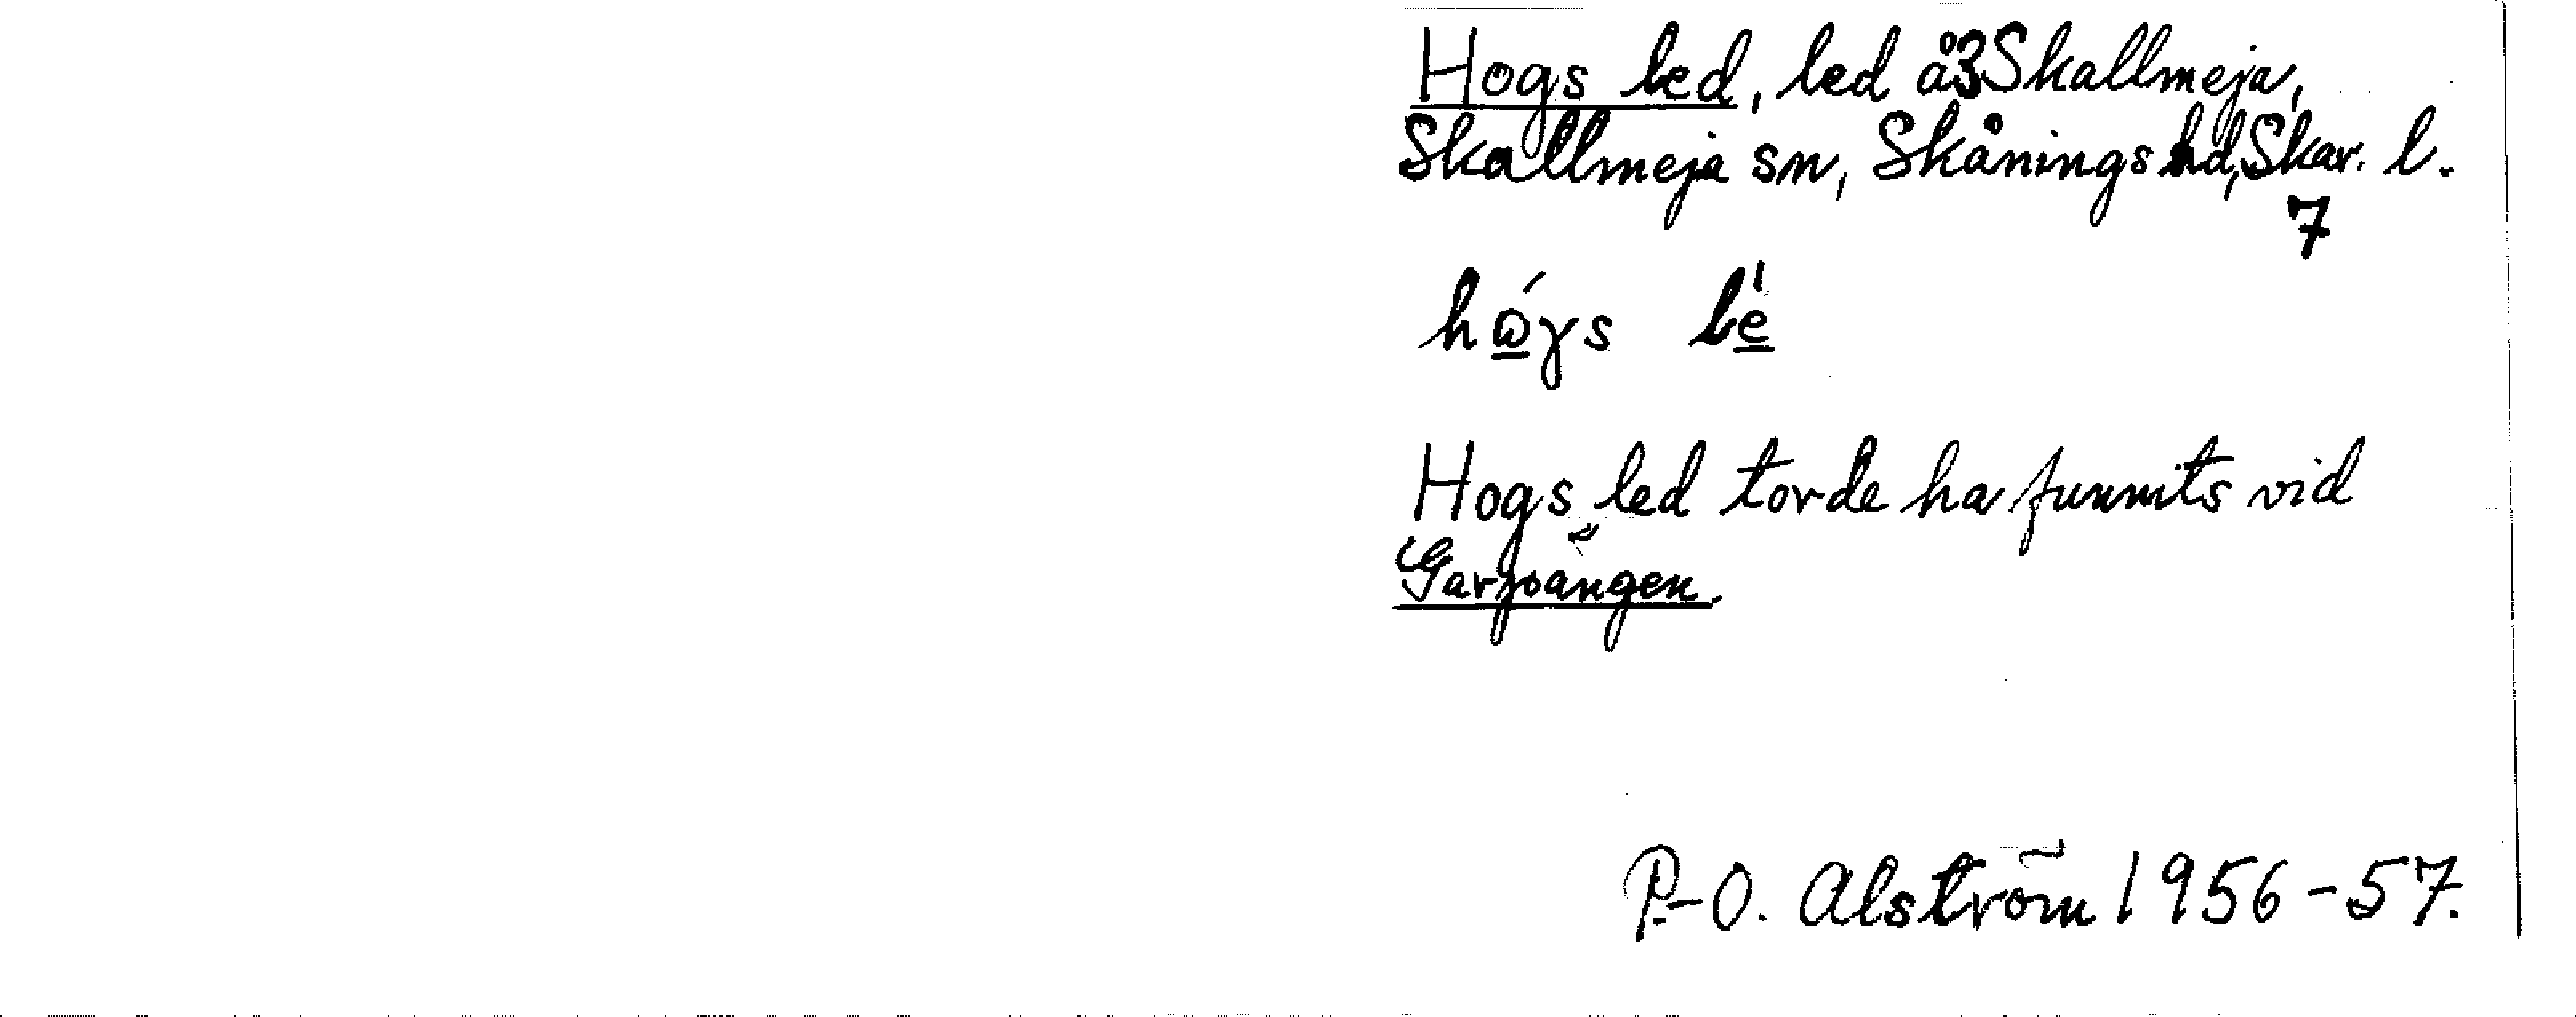 Hogs led, led å 3 Skallmeja,
Skallmeja sn, Skånings hd, Skar. l.
7
hɷ́ɣs lé
Hogs led torde ha funnits vid
Garpängen.
P.-O. Alström 1956-57.